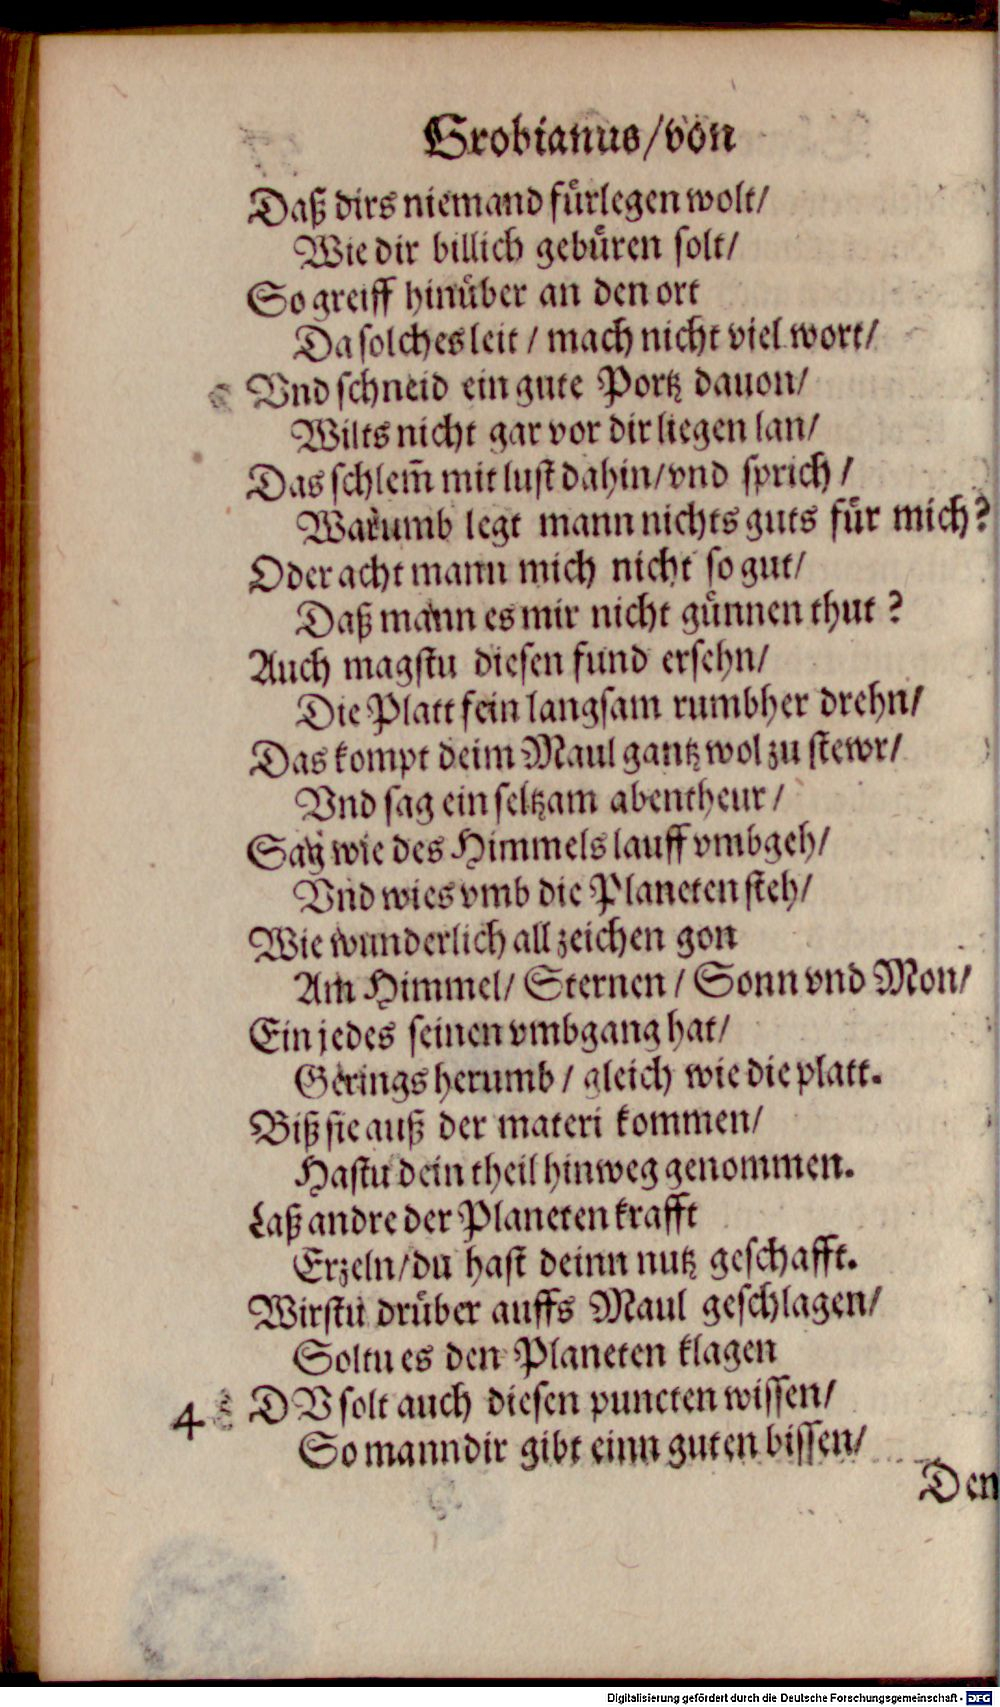 Grobianus/von
Daß dirs niemand fürlegen wolt/
Wie dir billich gebüren solt/
So greiff hinüber an den ort
Da solches leit / mach nicht viel wort/
Vnd schneid ein gute Portz dauon/
Wilts nicht gar vor dir liegen lan/
Das schlem̃ mit lust dahin/vnd sprich /
Warumb legt mann nichts guts für mich?
Oder acht mann mich nicht so gut/
Daß mann es mir nicht günnen thut ?
Auch magstu diesen fund ersehn/
Die Platt fein langsam rumbher drehn/
Das kompt deim Maul gantz wol zu stewr/
Vnd sag ein seltzam abentheur /
Sag wie des Himmels lauff vmbgeh/
Vnd wies vmb die Planeten steh/
Wie wunderlich all zeichen gon
Am Himmel/ Sternen / Sonn vnd Mon/
Ein jedes seinen vmbgang hat/
Gerings herumb / gleich wie die platt.
Biß sie auß der materi kommen/
Hastu dein theil hinweg genommen.
Laß andre der Planeten krafft
Erzeln/du hast deinn nutz geschafft.
Wirstu drüber auffs Maul geschlagen/
Soltu es den Planeten klagen
4 DV solt auch diesen puncten wissen/
So mann dir gibt einn guten bissen/
Den
Digitalisierung gefördert durch die Deutsche Forschungsgemeinschaft - DFG